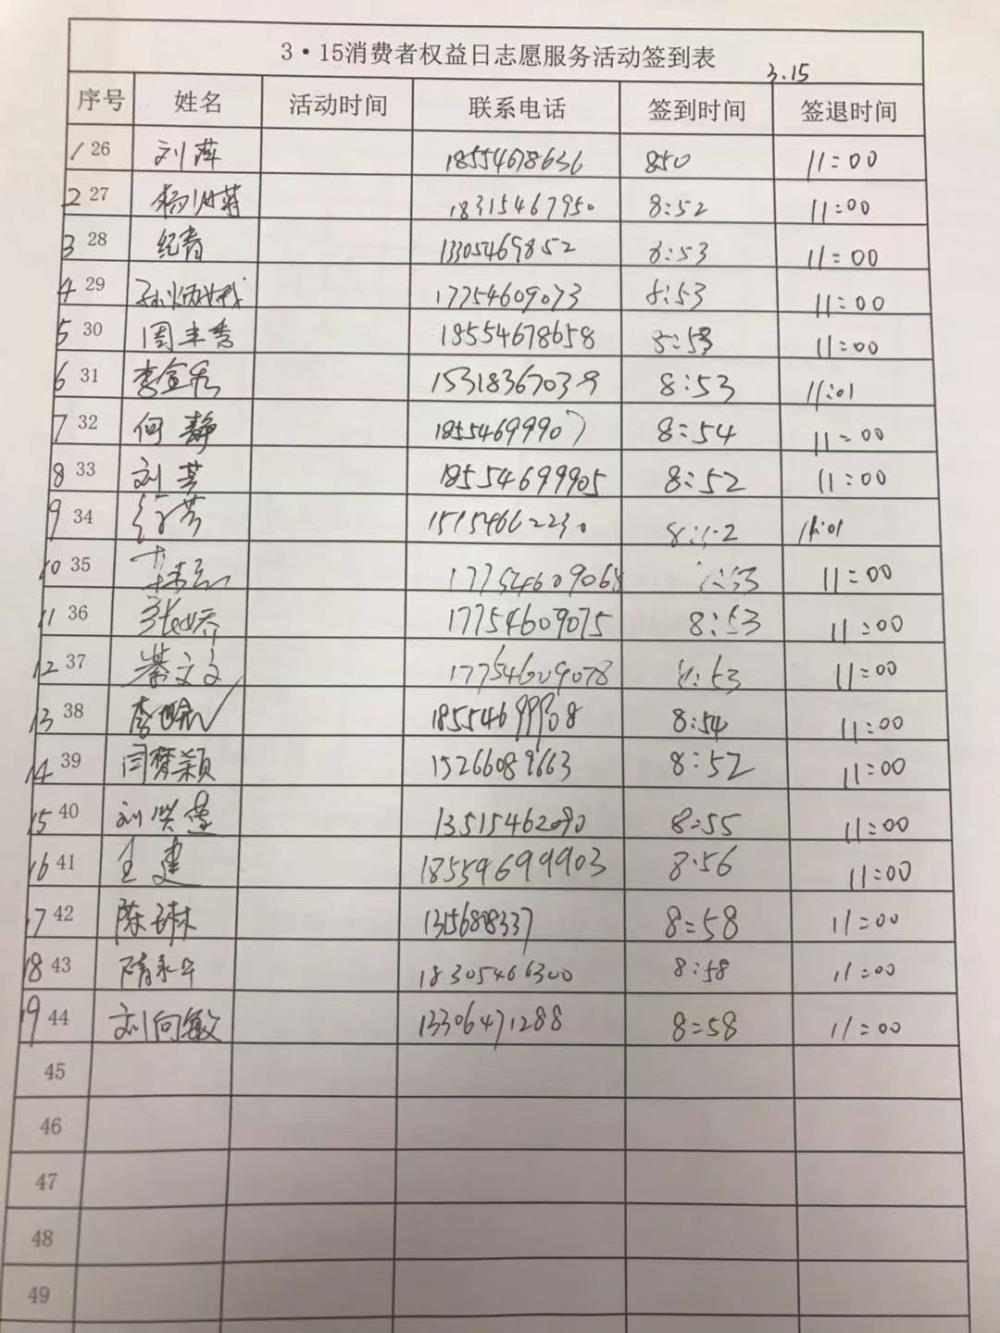 3·15消费者权益日志愿服务活动签到表
3.15
序号 姓名 活动时间 联系电话 签到时间 签退时间
1 26 刘萍 18554678636 850 11:00
2 27 18315467950 8:52 11:00
3 28 纪青 13305469852 8:53 11:00
4 29 17754609073 8:53 11:00
5 30 周丰秀 18554678658 8:53 11:00
6 31 李宣秀 15318367039 8:53 11:01
7 32 何静 18554699907 8:54 11:00
8 33 刘芳 18554699905 8:52 11:00
9 34 15154662230 8:52 11:01
10 35 17754609068 11:00
11 36 张娇 17754609075 8:53 11:00
12 37 綦文文 17754609078 8:53 11:00
13 38 18554699908 8:54 11:00
14 39 闫梦颖 15266089663 8:52 11:00
15 40 13515462090 8:55 11:00
16 41 王建 18554699903 8:56 11:00
17 42 陈琳 8:58 11:00
18 43 隋永午 18305466300 8:58 11:00
19 44 刘向敏 13306471288 8:58 11:00
45
46
47
48
49